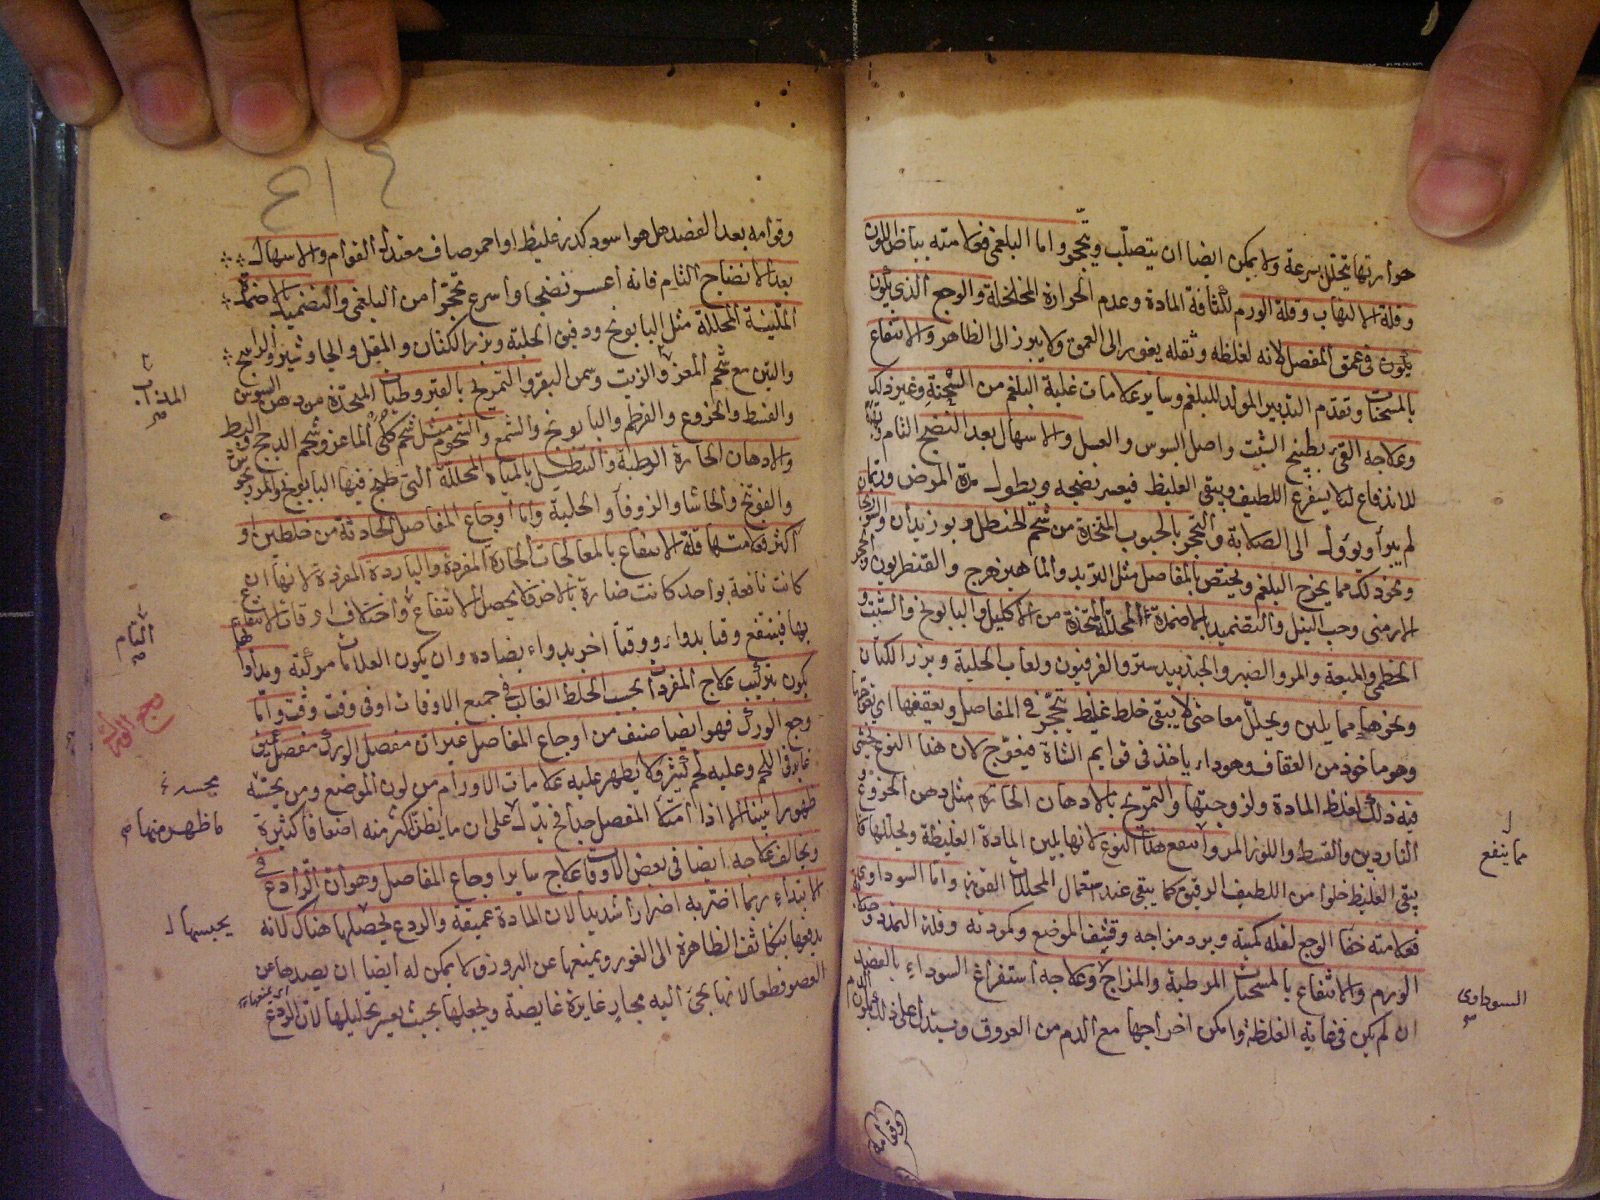 حرارتها تتحلل بسرعة ولا يمكن ايضا ان يتصلب ويتحجر واما البلغمى فعلامته بياض اللون
وقلة الالتهاب وقلة الورم لكثافة المادة وعدم الحرارة المخلخلة والوجع الذى يكون
يكون فى عمق المفصل لانه لغلظه وثقله يغور الى العمق ولا يبرز الى الظاهر والانتفاع
بالمسخنات وتقدم التدبير المولد للبلغم وساير علامات غلبة البلغم من السحنة وغير ذلك
وعلاجه القىء بطبيخ الشبت واصل السوس والعسل والاسهال بعد النضج التام
للاندفاع لئلا يستفرغ اللطيف ويبقى الغليظ فيعسر نضجه ويطول مدة المرض وزمان
لم يبرأ ويؤول الى الصلابة والتحجر بالحبوب المتخذة من شحم الحنظل وبوزيدان والسورنجان
ونحو ذلك مما يخرج البلغم ويختص بالمفاصل مثل التربد والماهيزهرج والقنطريون والحجر
الارمنى وحب النيل والتضميد بالاضمدة المحللة المتخذة من الاكليل والبابونج والشبت و
الخطمى والميعة والمر والصبر والجندبيدستر والفرفيون ولعاب الحلبة وبزر الكتان
ونحوها مما يلين ويحلل معا حتى لا يبقى خلط غليظ يتحجر فى المفاصل ويعقفها اى يعوجها
وهو ماخوذ من العقاف وهو داء ياخذ فى قوايم الشاة فيعوج لان هذا النوع يخشى
فيه ذلك لغلظ المادة ولزوجتها والتمريخ بالادهان الحارة مثل دهن الخروع و
الناردين والقسط واللوز المر وانتفع هذا النوع لانها يلين المادة الغليظة ويحللها فلا
يبقى الغليظ خلوا من اللطيف الرقيق كما يبقى عند استعمال المحللات القوية واما السوداوى
فعلامته خفا الوجع لقلة كميته وبرد مزاجه وقشف الموضع وكمودته وقلة التمدد وصلابة
الورم والانتفاع بالمسخنات المرطبة والمزاج وعلاجه استفراغ السوداء بالفصد
ان لم يكن فى غاية الغلظة وامكن اخراجها مع الدم من العروق ويستدل على ذلك بلون الدم
مما ينفع
السوداوى
وقوامه
وقوامه بعد الفصد هل هو اسود كدر غليظ او احمر صاف معتدل القوام والاسهال
بعد الانضاج التام فانه أعسر نضجا وأسرع تحجرا من البلغمى والتضميد بالاضمدة
الملينة المحللة مثل البابونج ودقيق الحلبة وبزر الكتان والمقل والجاوشير والراتينج
والتين مع شحم المعز والزيت وسمن البقر والتمريخ بالقيروطيات المتخذة من دهن السوسن
والقسط والخروع والقرطم والبابونج والشمع والشحوم مثل شحم كلى الماعز وشحم الدجج والبط
والادهان الحارة الرطبة والتنطيل بالمياه المحللة التى طبخ فيها البابونج والمرزنجوش
والفوتنج والحاشا والزوفا والحلبة واما أوجاع المفاصل الحادثة من خلطين او
اكثر فعلامتها قلة الانتفاع بالمعالجات الحارة المفردة والباردة المفردة لانها ان
كانت نافعة بواحد كانت ضارة بالاخر فلا يحصل الانتفاع واختلاف اوقات الانتفاع
بها فينتفع وقتا بدواء ووقتا اخر بدواء يضاده وان يكون العلامات مركبة ويداوا
يكون بتركيب علاج المفردات بحسب الخلط الغالب فى جميع الاوقات او فى وقت وقت واما
وجع الورك فهو ايضا صنف من اوجاع المفاصل غير ان مفصل الورك مفصل عميق
غاير فى اللحم وعليه لحم كثير ولا يظهر عليه علامات الاورام من لون الموضع ومن يحسه
ظهورا بينا الا اذا امتلأ المفصل جدا فيدلك على ان ما يظن اكثر منه اضعافا كثيرة
ويخالف علاجه ايضا فى بعض الاوقات علاج ساير اوجاع المفاصل وهو ان الرادع فى
الابتداء ربما اضر به اضرارا شديدا لان المادة عميقة والردع يحصلها هناك لانه
يدفعها بتكاثف الظاهرة الى الغور ويمنعها عن البروز فلا يمكن له ايضا ان يصيدها عن
العضو قطعا لانها تجىء اليه مجار غايرة غايصة ويجعلها بحيث يعسر تحليلها لان الردع
المذاب
التام
وجع الورك
يحسه
ما ظهر منها
يحبسها